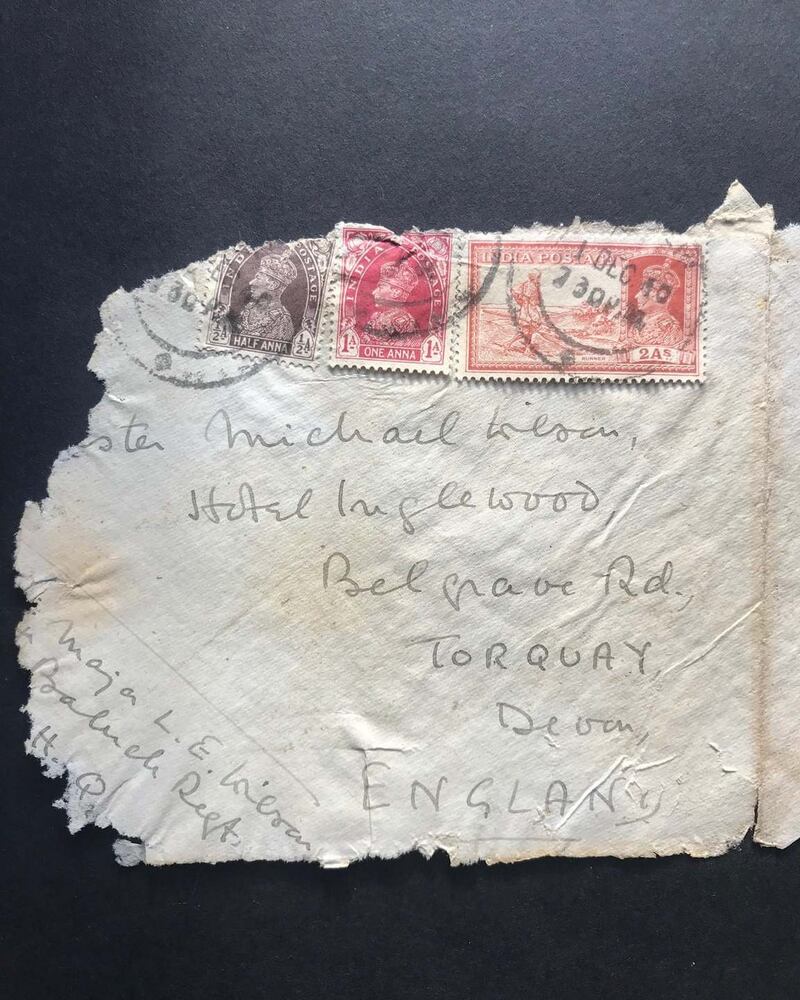 INDIA POSTAGE
½A ½A
HALF ANNA
INDIA POSTAGE
1A 1A
ONE ANNA
INDIA POSTAGE
RUNNER
2As
1 DEC 40
7 30
ster Michael Wilson,
Hotel Inglewood,
Belgrave Rd.,
TORQUAY,
Devon,
ENGLAND
Major L. E. Wilson
Baluch Regt.
H. Q